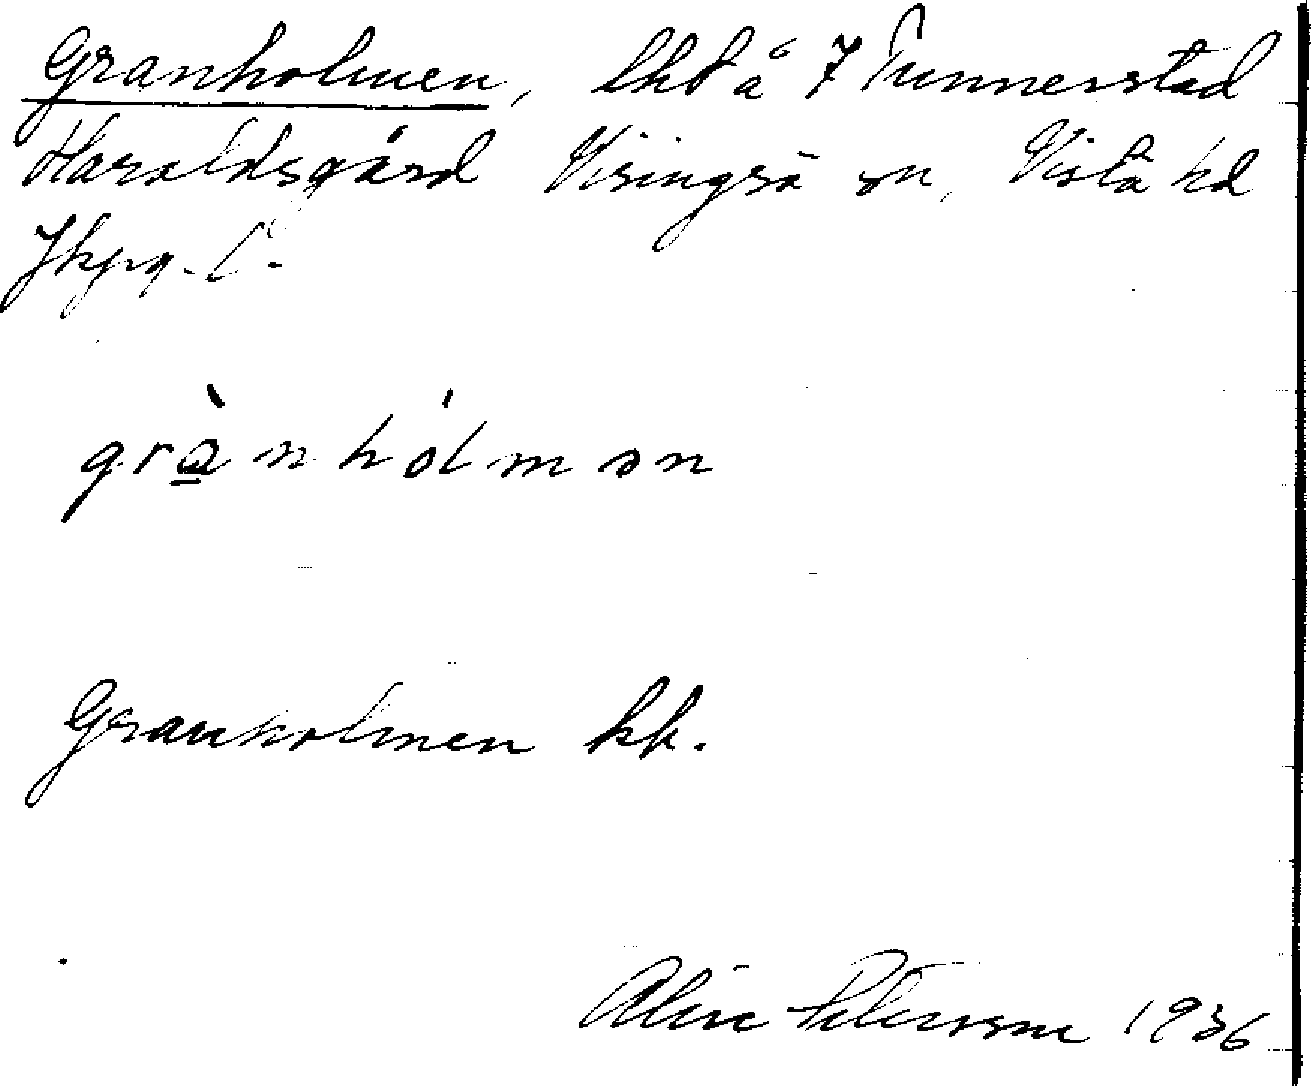 Granholmen, lht å 7 Tunnerstad
Haraldsgård Visingsö sn, Vista hd
Jkpg. L.
grànhólmən
Granholmen hk.
Petersson 1936